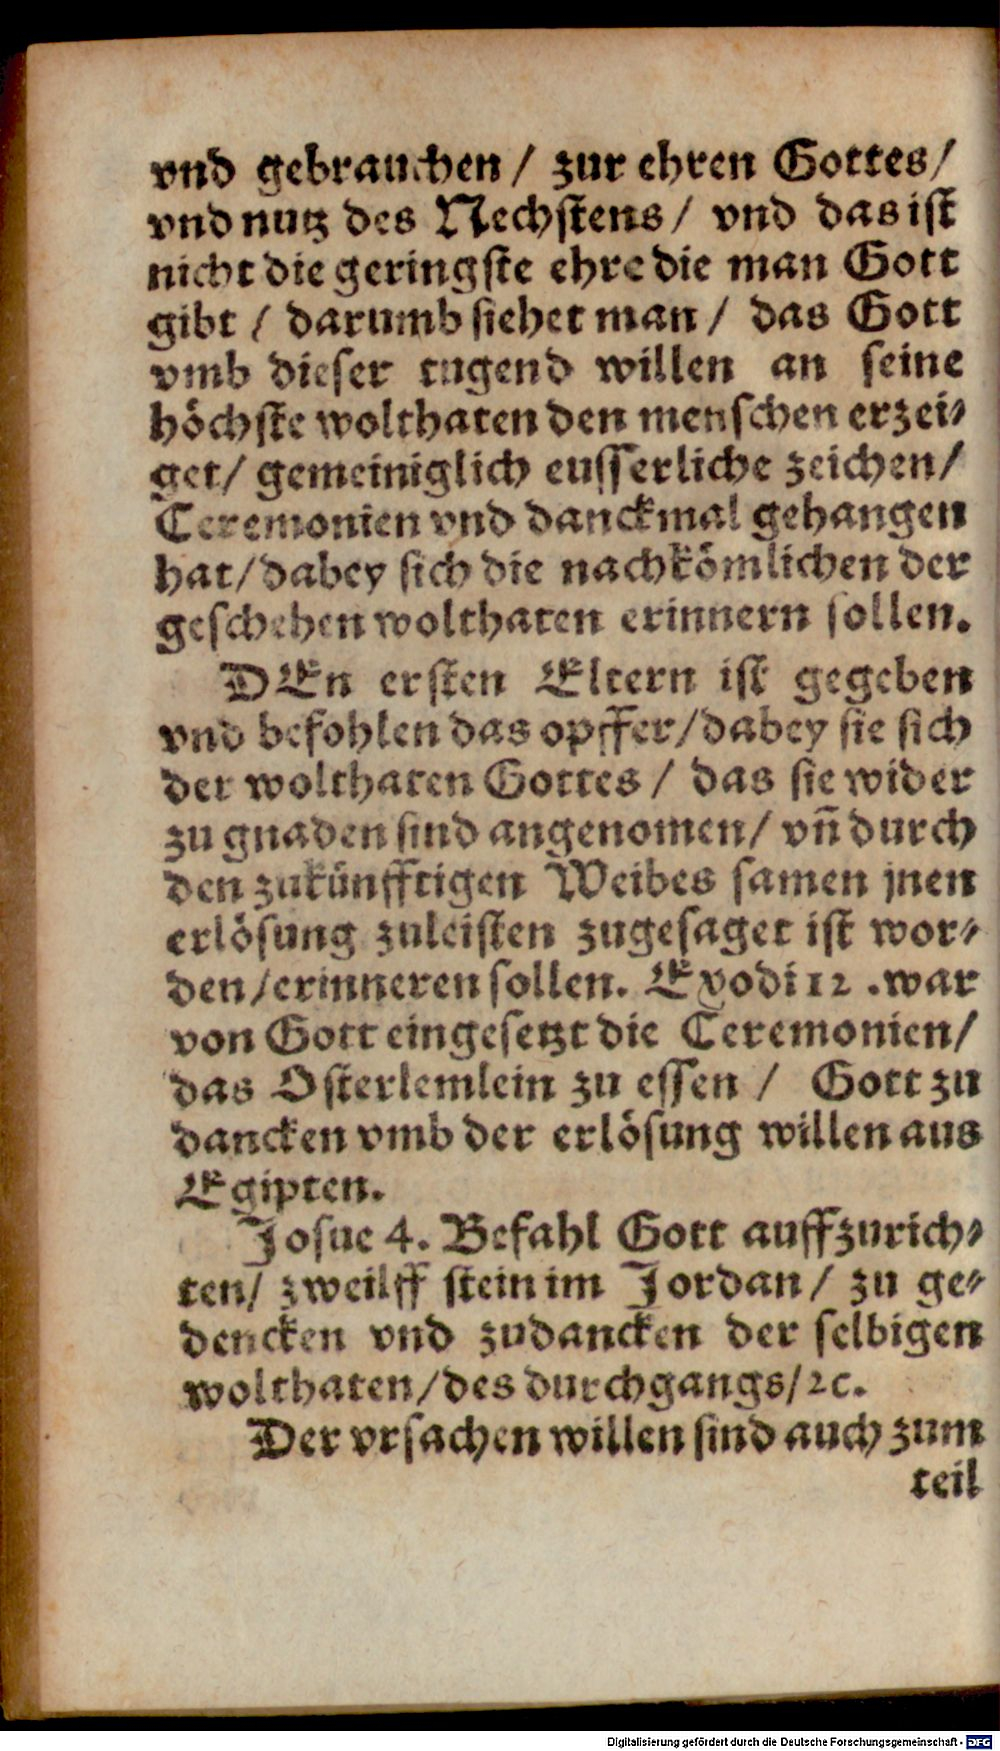 vnd gebrauchen / zur ehren Gottes/
vnd nutz des Nechstens / vnd das ist
nicht die geringste ehre die man Gott
gibt / darumb siehet man / das Gott
vmb dieser tugend willen an seine
höchste wolthaten den menschen erzei-
get/ gemeiniglich eusserliche zeichen/
Ceremonien vnd danckmal gehangen
hat/ dabey sich die nachkömlichen der
geschehen wolthaten erinnern sollen.
DEn ersten Eltern ist gegeben
vnd befohlen das opffer/ dabey sie sich
der wolthaten Gottes / das sie wider
zu gnaden sind angenomen/ vñ durch
den zukünfftigen Weibes samen jnen
erlösung zuleisten zugesaget ist wor-
den/ erinneren sollen. Exodi 12 . war
von Gott eingesetzt die Ceremonien/
das Osterlemlein zu essen / Gott zu
dancken vmb der erlösung willen aus
Egipten.
Josue 4. Befahl Gott auffzurich-
ten/ zweilff stein im Jordan/ zu ge-
dencken vnd zudancken der selbigen
wolthaten/ des durchgangs/ ꝛc.
Der vrsachen willen sind auch zum
teil
Digitalisierung gefördert durch die Deutsche Forschungsgemeinschaft - DFG